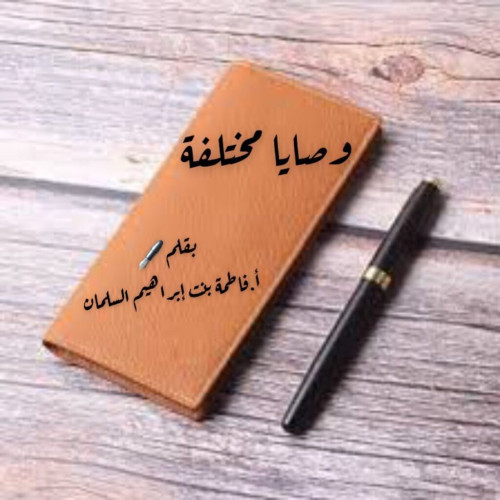 وصايا مختلفة
بقلم
أ.فاطمة بنت إبراهيم السلمان